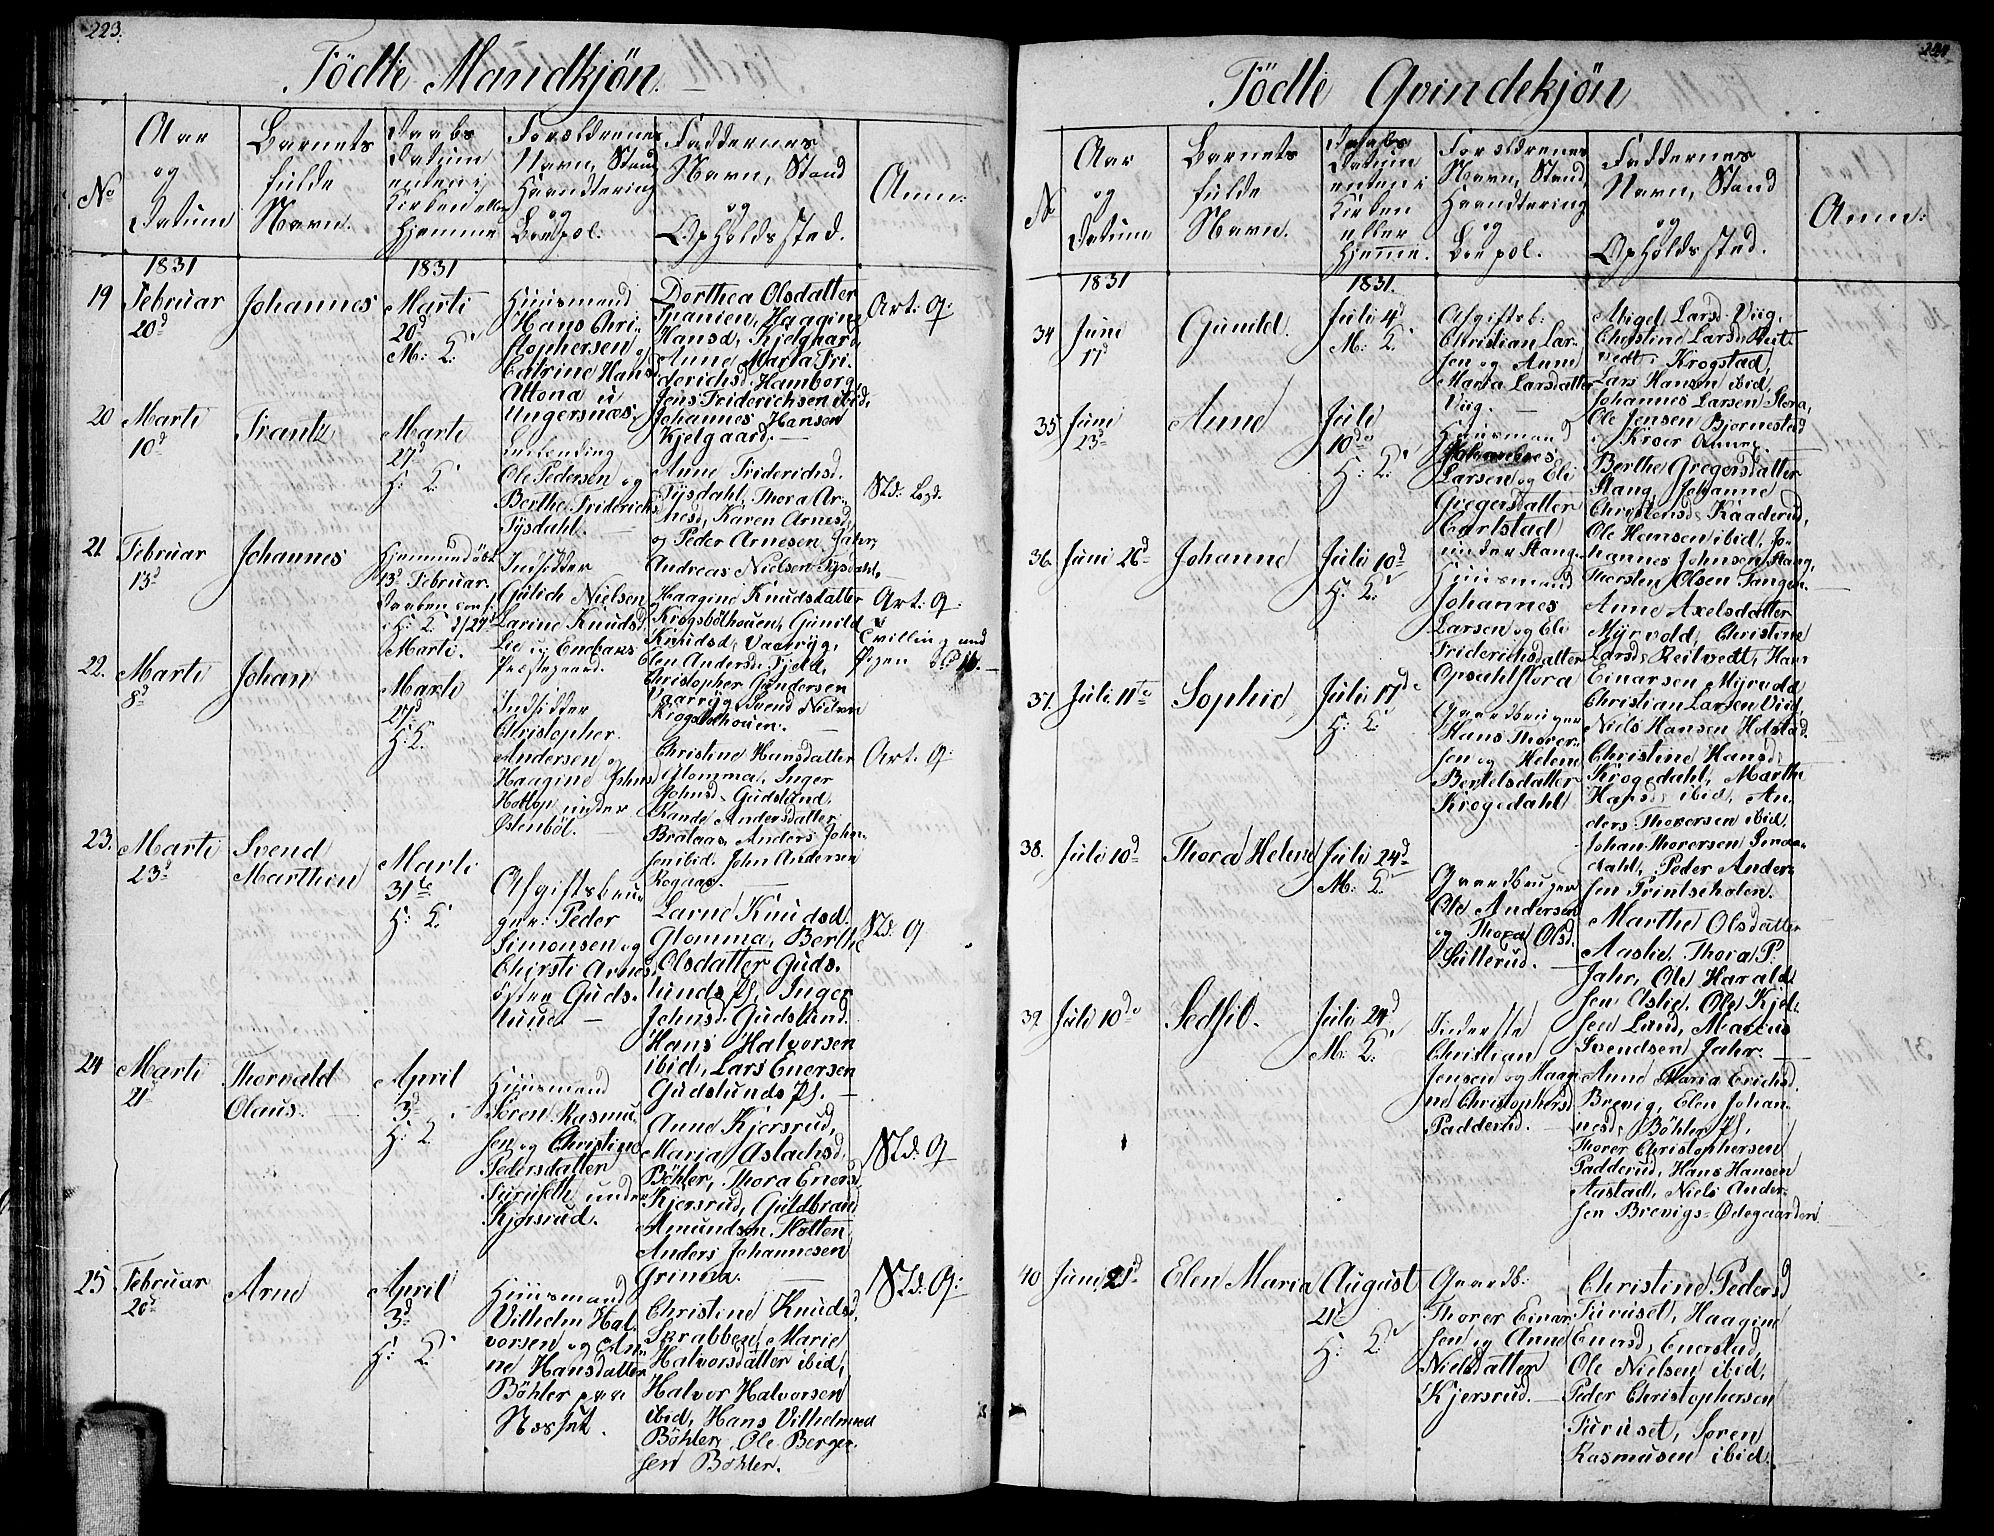 223.
Födte Mandkjön.
No
Aar
og
Datum
Barnets
fulde
Navn.
Daabs
Datum
enten i
Kirken eller
Hjemme
Forældrenes
Navn, Stand
Haandtering
og
Boepæl.
Faddernes
Navn, Stand
og
Opholdssted.
Anm:
1831
1831
19
Februar
20d
Johannes
Marti
20d
M: K.
Huusmand
Hans Chri-
stophersen og
Catrine Hans
Altona u
Ungersnæs.
Dorthea Olsdatter
Spanien, Haagine
Hansd, Kjelgaard,
Anne Maria Fri-
derichsd, Hamborg,
Jens Friderichsen ibid,
Johannes Hansen
Kjelgaard.
Art: g:
20
Marti
10d
Frantz
Marti
27d
H: K.
Ole Pedersen og
Berthe Friderichs
Tysdahl.
Anne Friderichsd.
Tysdahl, Thora Ar-
nesd, Karen Arnesd,
og Peder Arnesen Jahr,
Andreas Nielsen Tysdahl.
21
Februar
13d
Johannes
Hjemmedöbt
13d Februar.
Daaben conf.
i H: K. d/27d
Marti.
Indsidder
Gulich Nielsen
Larine Knudsd.
Lie u Enebaks
Præstegaard.
Haagine Knudsdatter
Krogsbölhouen, Gunild
Knudsd, Vaaryg,
Elen Andersd. Fjeld,
Christopher Gundersen
Vaaryg, Svend Nielsen
Krogsbölhouen.
Art: g:
Tvilling med
Pigen
22.
Marti
8d
Johan
Marti
27d
H: K.
Indsidder
Christopher
Andersen og
Haagine Johns
under
Östenböl.
Christine Hansdatter
Glomma, Inger
Johnsd. Gudslund,
Rande Andersdatter
Brataas, Anders Johan-
sen ibid. John Andersen
Rogaas.
Art. g:
23.
Marti
23d
Svend
Marthin
Marti
31te
H: K.
Afgiftsbru-
ger: Peder
Simonsen og
Chirsti Arnes
Guds-
lund.
Larne Knudsd.
Glomma, Berthe
Olsdatter Guds-
lunds Pl, Inger
Johnsd. Gudslund.
Hans Halvorsen
ibid, Lars Enersen
Gudslunds Pl.
Nd: g
24
Marti
21
Thorvald
Olaus.
April
3d
H: K
Huusmand
Sören Rasmu-
sen og Christine
Pedersdatter
Furuseth under
Kjersrud.
Anne Kjersrud,
Maria Aslachsd.
Böhler, Thora Enersd
Kjersrud, Guldbrand
Amundsen Hotten
Anders Johannesen
Grinna.
Nd: g
25
Februar
20d
Arne
April
3d
H: K.
Huusmand
Vilhelm Hal-
vorsen og An-
ne Hansdatter
Böhler paa
Næsset.
Christine Knudsd,
Skrabben, Marie
Halvorsdatter ibid,
Halvor Halvorsen
ibid, Hans Vilhelmsen
Böhler, Ole Berger-
sen Böhler.
Nd: g:
224
Födte Qvindekjön
No
Aar
og
Datum
Barnets
fulde
Navn.
Daabs
Datum
enten i
Kirken
eller
Hjemme.
Forældrenes
Navn, Stand,
Haandtering
og
Boepæl.
Faddernes
Navn, Stand
og
Opholdssted.
Anm:
1831
1831.
34
Juni
17d
Gunild.
Juli 4d
M: K.
Afgiftsb:
Christian Lar-
sen og Anne
Maria Larsdatter
Viig.
Abigel Larsd. Viig,
Christine Larsd. Reit-
vedt i Krogstad,
Lars Hansen ibid,
Johannes Larsen Flora,
Ole Jensen Bjornestad
i Kroer Annex.
35
Juni
23d
Anne
Juli
10de
H: K.
Huusmand
Johannes
Larsen og Eli
Gregersdatter
Carlstad
under Stang.
Berthe Gregersdatter
Stang, Johanne
Christensd. Kaaderud,
Ole Hansen ibid, Jo-
hannes Johnsen Stang,
Thorsten Olsen Tangen.
36.
Juni 26d
Johanne
Juli 10d
H: K.
Huusmand
Johannes
Larsen og Eli
Friderichsdatter
Opsahlflora
Anne Axelsdatter
Myrvold, Christine
Larsd. Reitvedt, Hans
Einarsen Myrvold
Christian Larsen Viig,
Niels Hansen Holstad.
37.
Juli 11te
Sophie
Juli 17de
H: K.
Gaardbruger
Hans Thorer-
sen og Helene
Bertelsdatter
Krogedahl
Christine Hansd.
Krogedahl, Marthe
Hansd. ibid, An-
ders Thorersen ibid,
Johan Thorersen
dahl, Peder Ander-
sen Frintsehaten.
38.
Juli 10d
Thora Helene
Juli 24d
M: K.
Gaardbruger
Ole Andersen
og Thora Olsd.
Sulterud.
Marthe Olsdatter
Aaslie, Thora P.
Jahr, Ole Harald-
sen Aslie, Ole Kjel-
sen Lund, Marcus
Svendsen Jahr.
39
Juli 10de
Sedsil.
Juli 24d
M: K.
Inderste
Christian
Jensen og Haagi-
ne Christophersd
Padderud.
Anne Maria Erichsd.
Brevig, Elen Johan-
nesd. Böhler Pl,
Thorer Christophersen
Padderud, Hans Hansen
Aastad, Niels Ander-
sen Brevigs-Ödegaarden
40
Juni 21d
Elen Maria
August
21d
H: K.
Gaardb:
Thorer Einar-
sen og Anne
Nielsdatter
Kjersrud.
Christine Pedersd
Furuset, Haagine
Enersd, Enerstad,
Ole Nielsen ibid,
Peder Christophersen
Furuset, Sören
Rasmusen ibid.